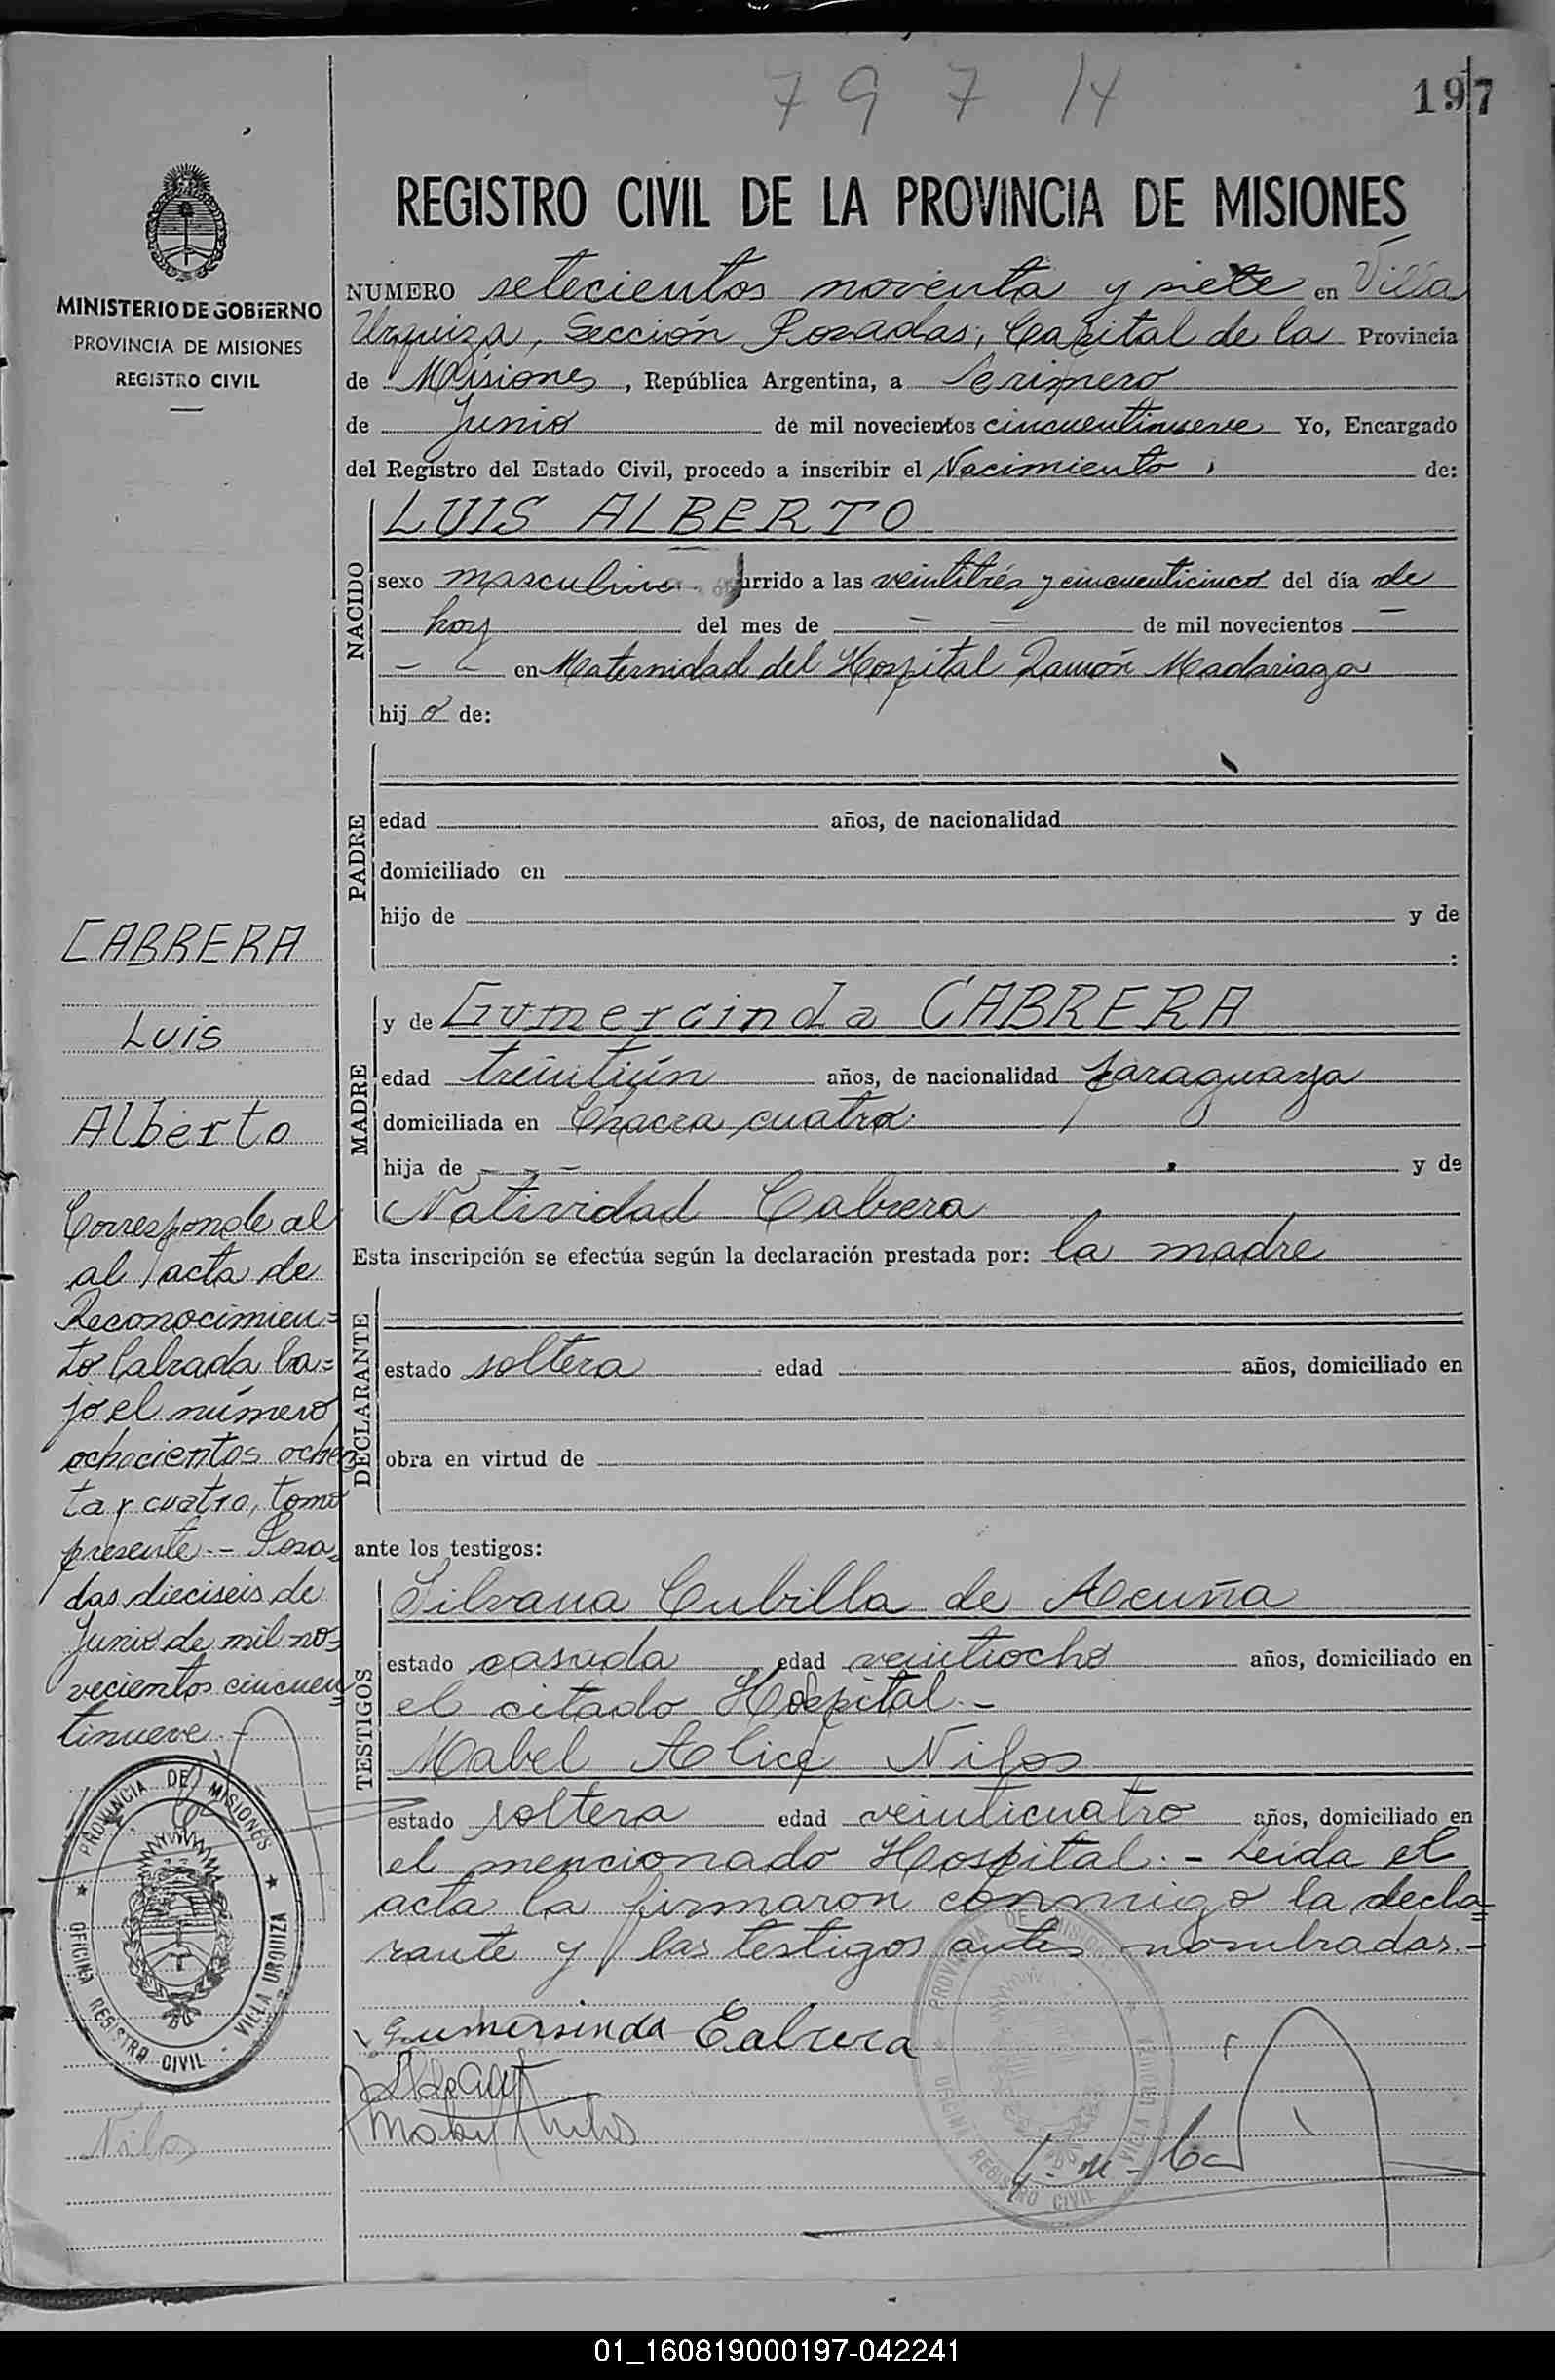 797 14
197
MINISTERIO DE GOBIERNO
PROVINCIA DE MISIONES
REGISTRO CIVIL
REGISTRO CIVIL DE LA PROVINCIA DE MISIONES
NUMERO setecientos noventa y siete en Villa
Urquiza, Sección Posadas, Capital de la Provincia
de Misiones, República Argentina, a Primero
de Junio de mil novecientos cincuentinueve Yo, Encargado
del Registro del Estado Civil, procedo a inscribir el Nacimiento, de:
NACIDO
LUIS ALBERTO
sexo masculino urrido a las veintitrés y cincuenticinco del día de
hoy del mes de — — de mil novecientos —
— — en Maternidad del Hospital Ramón Madariaga
hijo de:
PADRE
edad años, de nacionalidad
domiciliado en
hijo de y de
:
MADRE
y de Gumercinda CABRERA
edad treintiún años, de nacionalidad paraguaya
domiciliada en Chacra cuatro.
hija de - - - y de
Natividad Cabrera
Esta inscripción se efectúa según la declaración prestada por: la madre
DECLARANTE
estado soltera edad años, domiciliado en
obra en virtud de
ante los testigos:
TESTIGOS
Silvana Cubilla de Acuña
estado casada edad veintiocho años, domiciliado en
el citado Hospital.-
Mabel Alice Nilos
estado soltera edad veinticuatro años, domiciliado en
el mencionado Hospital.- Leida el
acta la firmaron conmigo la decla=
rante y las testigos antes nombradas.-
Gumersinda Cabrera
CABRERA
Luis
Alberto
Corresponde al
al acta de
Reconocimien=
to labrada ba=
jo el número
ochocientos ochen
ta y cuatro, tomo
presente.- Posa=
das dieciseis de
Junio de mil no=
vecientos cincuen=
tinueve.-
PROVINCIA DE MISIONES
OFICINA REGISTRO CIVIL - VILLA URQUIZA
Nilos
PROVINCIA DE MISIONES
OFICINA REGISTRO CIVIL VILLA URQUIZA
01_160819000197-042241